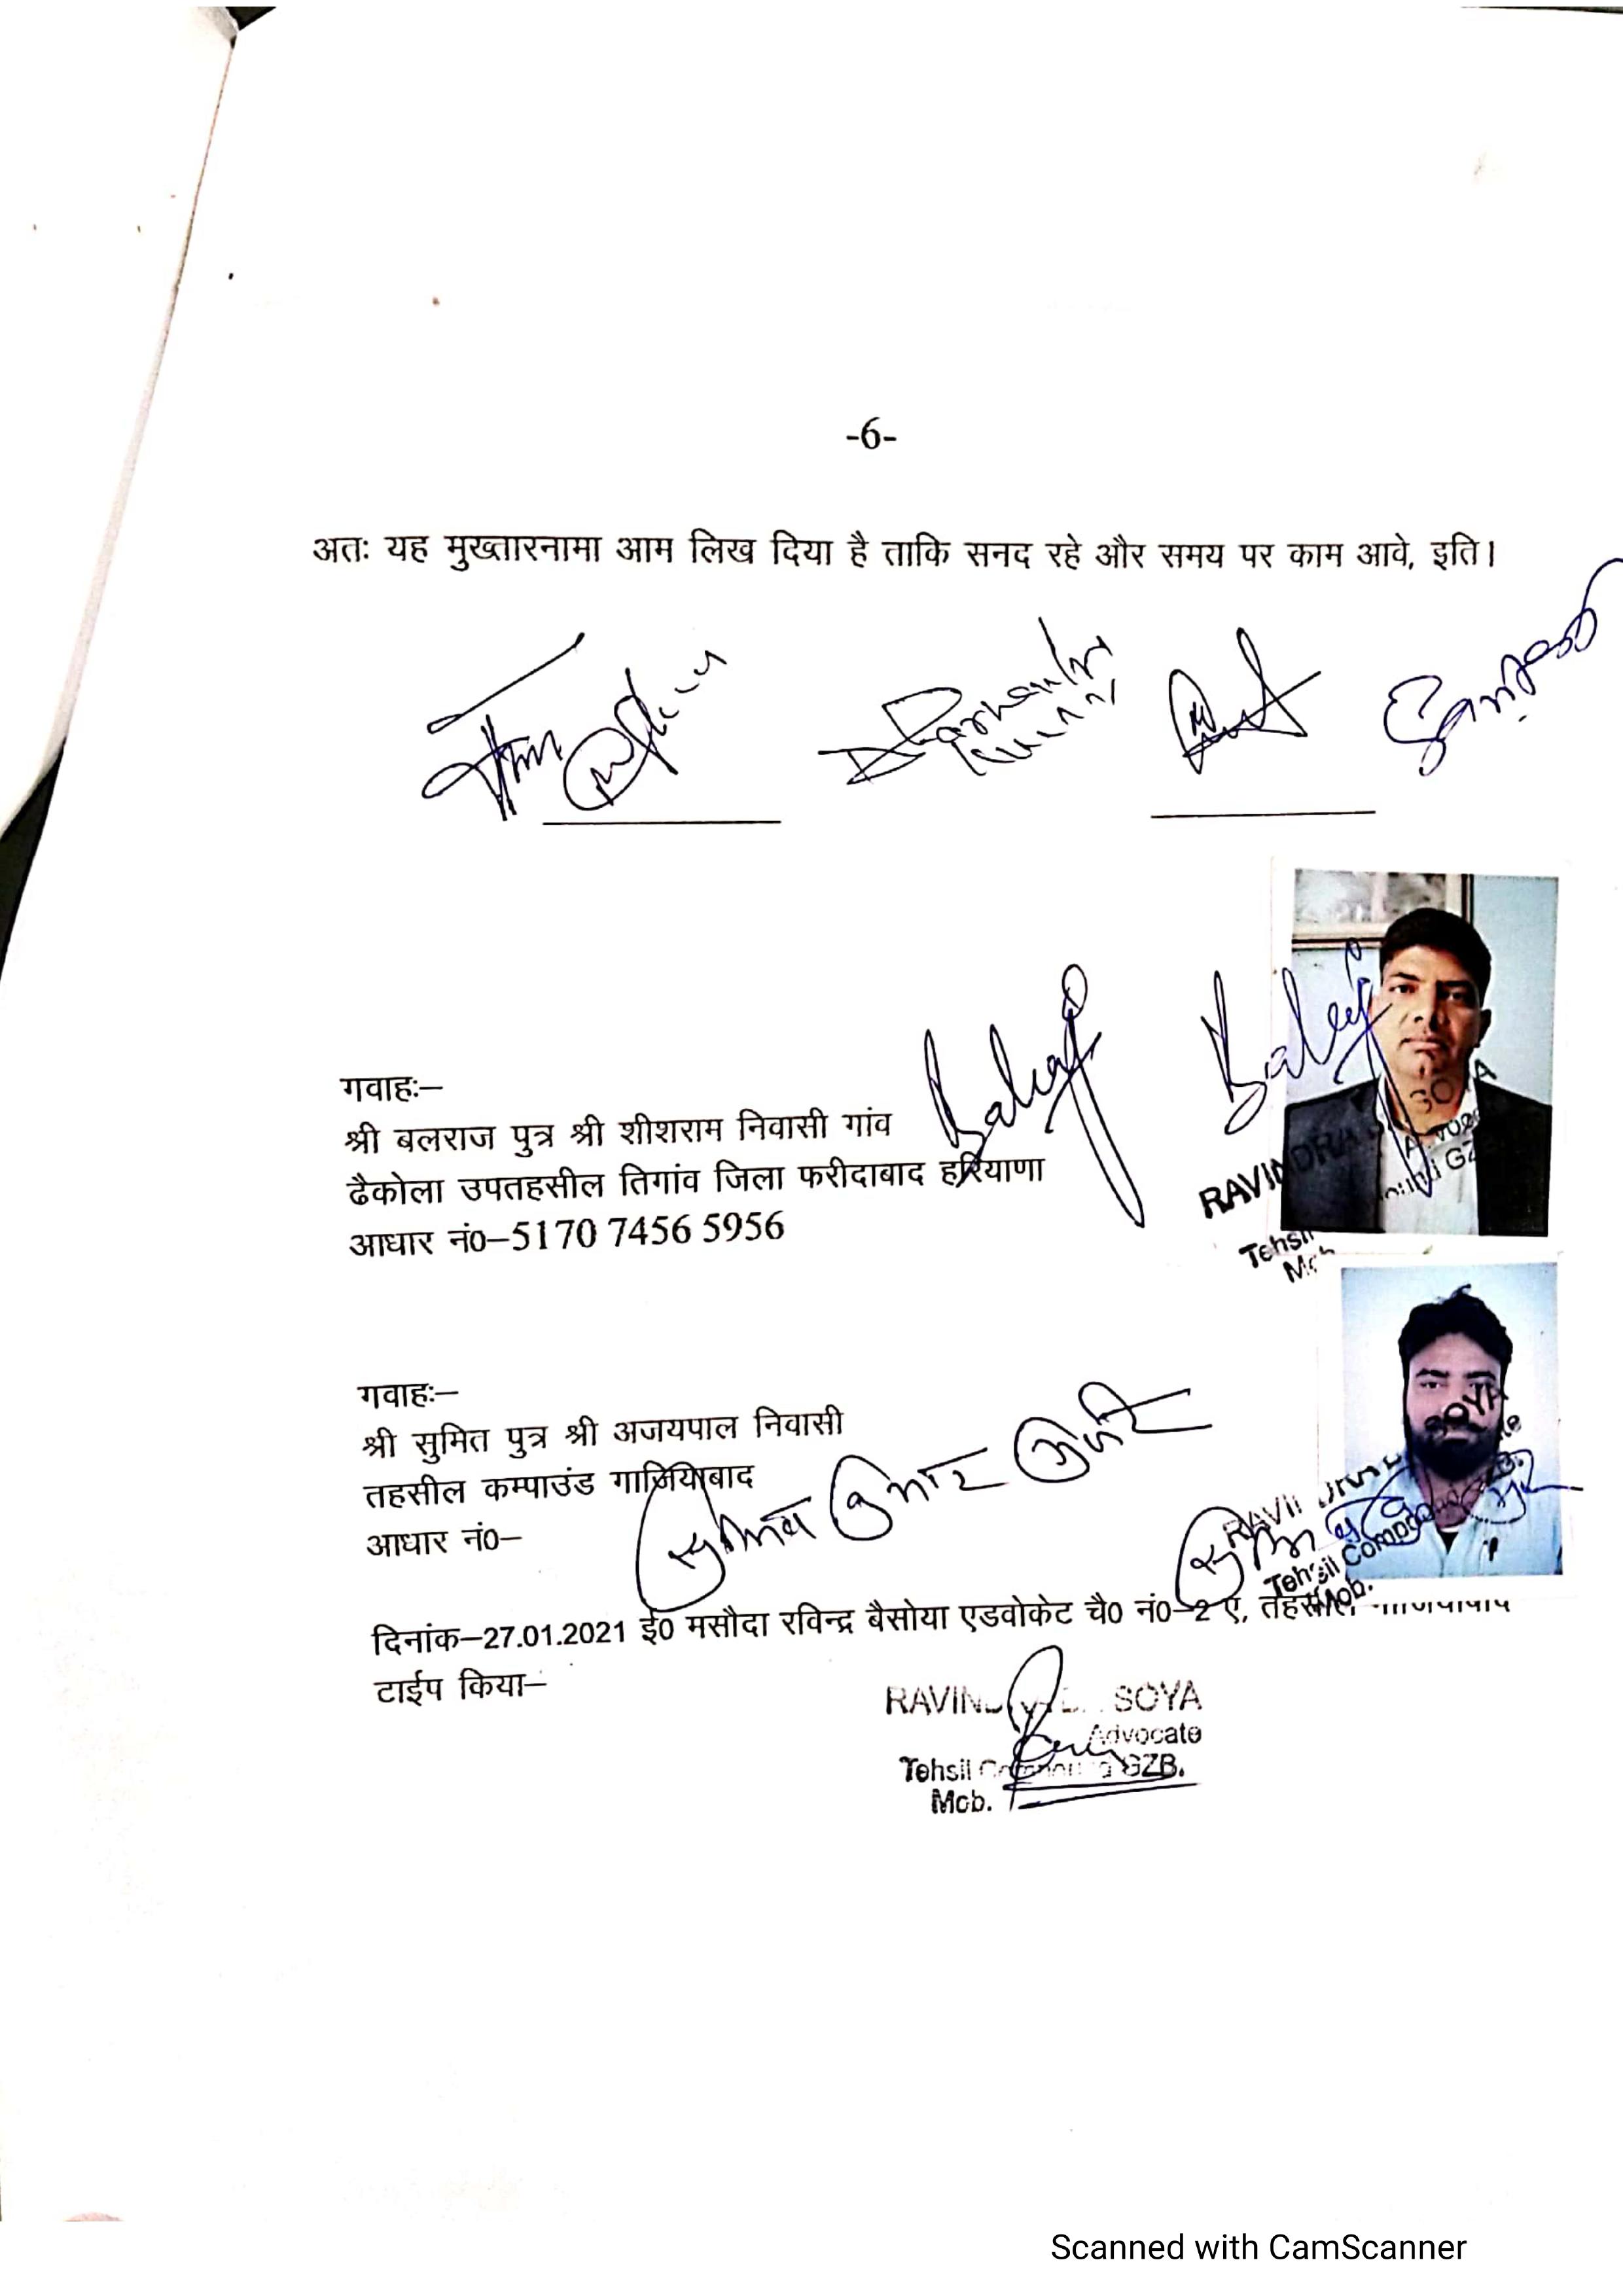 -6-
अतः यह मुख्तारनामा आम लिख दिया है ताकि सनद रहे और समय पर काम आवे, इति।
गवाहः–
श्री बलराज पुत्र श्री शीशराम निवासी गांव
ढैकोला उपतहसील तिगांव जिला फरीदाबाद हरियाणा
आधार नं0–5170 7456 5956
RAVIN
Tehsil
गवाहः–
श्री सुमित पुत्र श्री अजयपाल निवासी
तहसील कम्पाउंड गाजियाबाद
आधार नं0–
सुमित कुमार
Tehsil
Mob.
दिनांक–27.01.2021 ई0 मसौदा रविन्द्र बैसोया एडवोकेट चै0 नं0–2 ए, तहसील गाजियाबाद
टाईप किया–
SOYA
Advocate
Tehsil GZB.
Mob.
Scanned with CamScanner